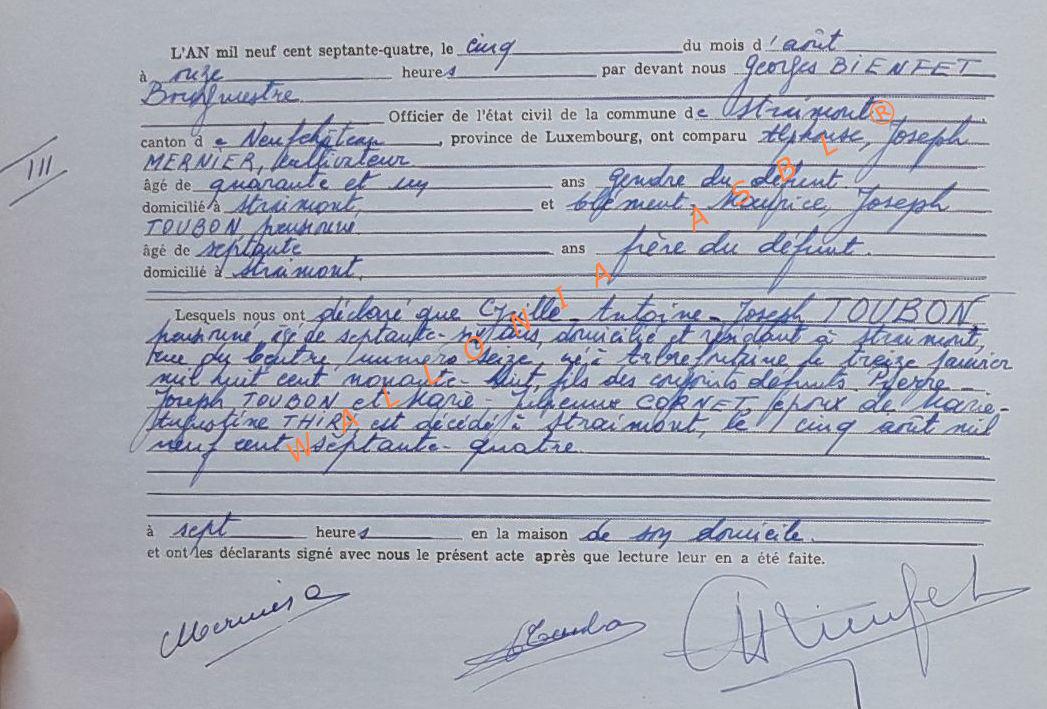 L'AN mil neuf cent septante-quatre, le cinq du mois d'août
à onze heures par devant nous Georges BIENFET
Bourgmestre
Officier de l'état civil de la commune de Straimont
canton de Neufchâteau, province de Luxembourg, ont comparu Alphonse, Joseph
III
MERNIER, cultivateur
âgé de quarante et un ans gendre du défunt
domicilié à Straimont, et Clément-Maurice, Joseph
TOUBON, pensionné
âgé de septante ans frère du défunt.
domicilié à Straimont,
Lesquels nous ont déclaré que Cyrille-Antoine-Joseph TOUBON
pensionné, âgé de septante-six ans, domicilié et résidant à Straimont,
rue du Centre, numéro seize, né à le treize janvier
mil huit cent nonante-huit, fils des conjoints défunts Pierre-
Joseph TOUBON et Marie- CORNET, époux de Marie-
Augustine THIRY est décédé à Straimont, le cinq août mil
neuf cent septante-quatre.
à sept heures en la maison de son domicile.
et ont les déclarants signé avec nous le présent acte après que lecture leur en a été faite.
Mernier A
WALLONIA ASBL ®